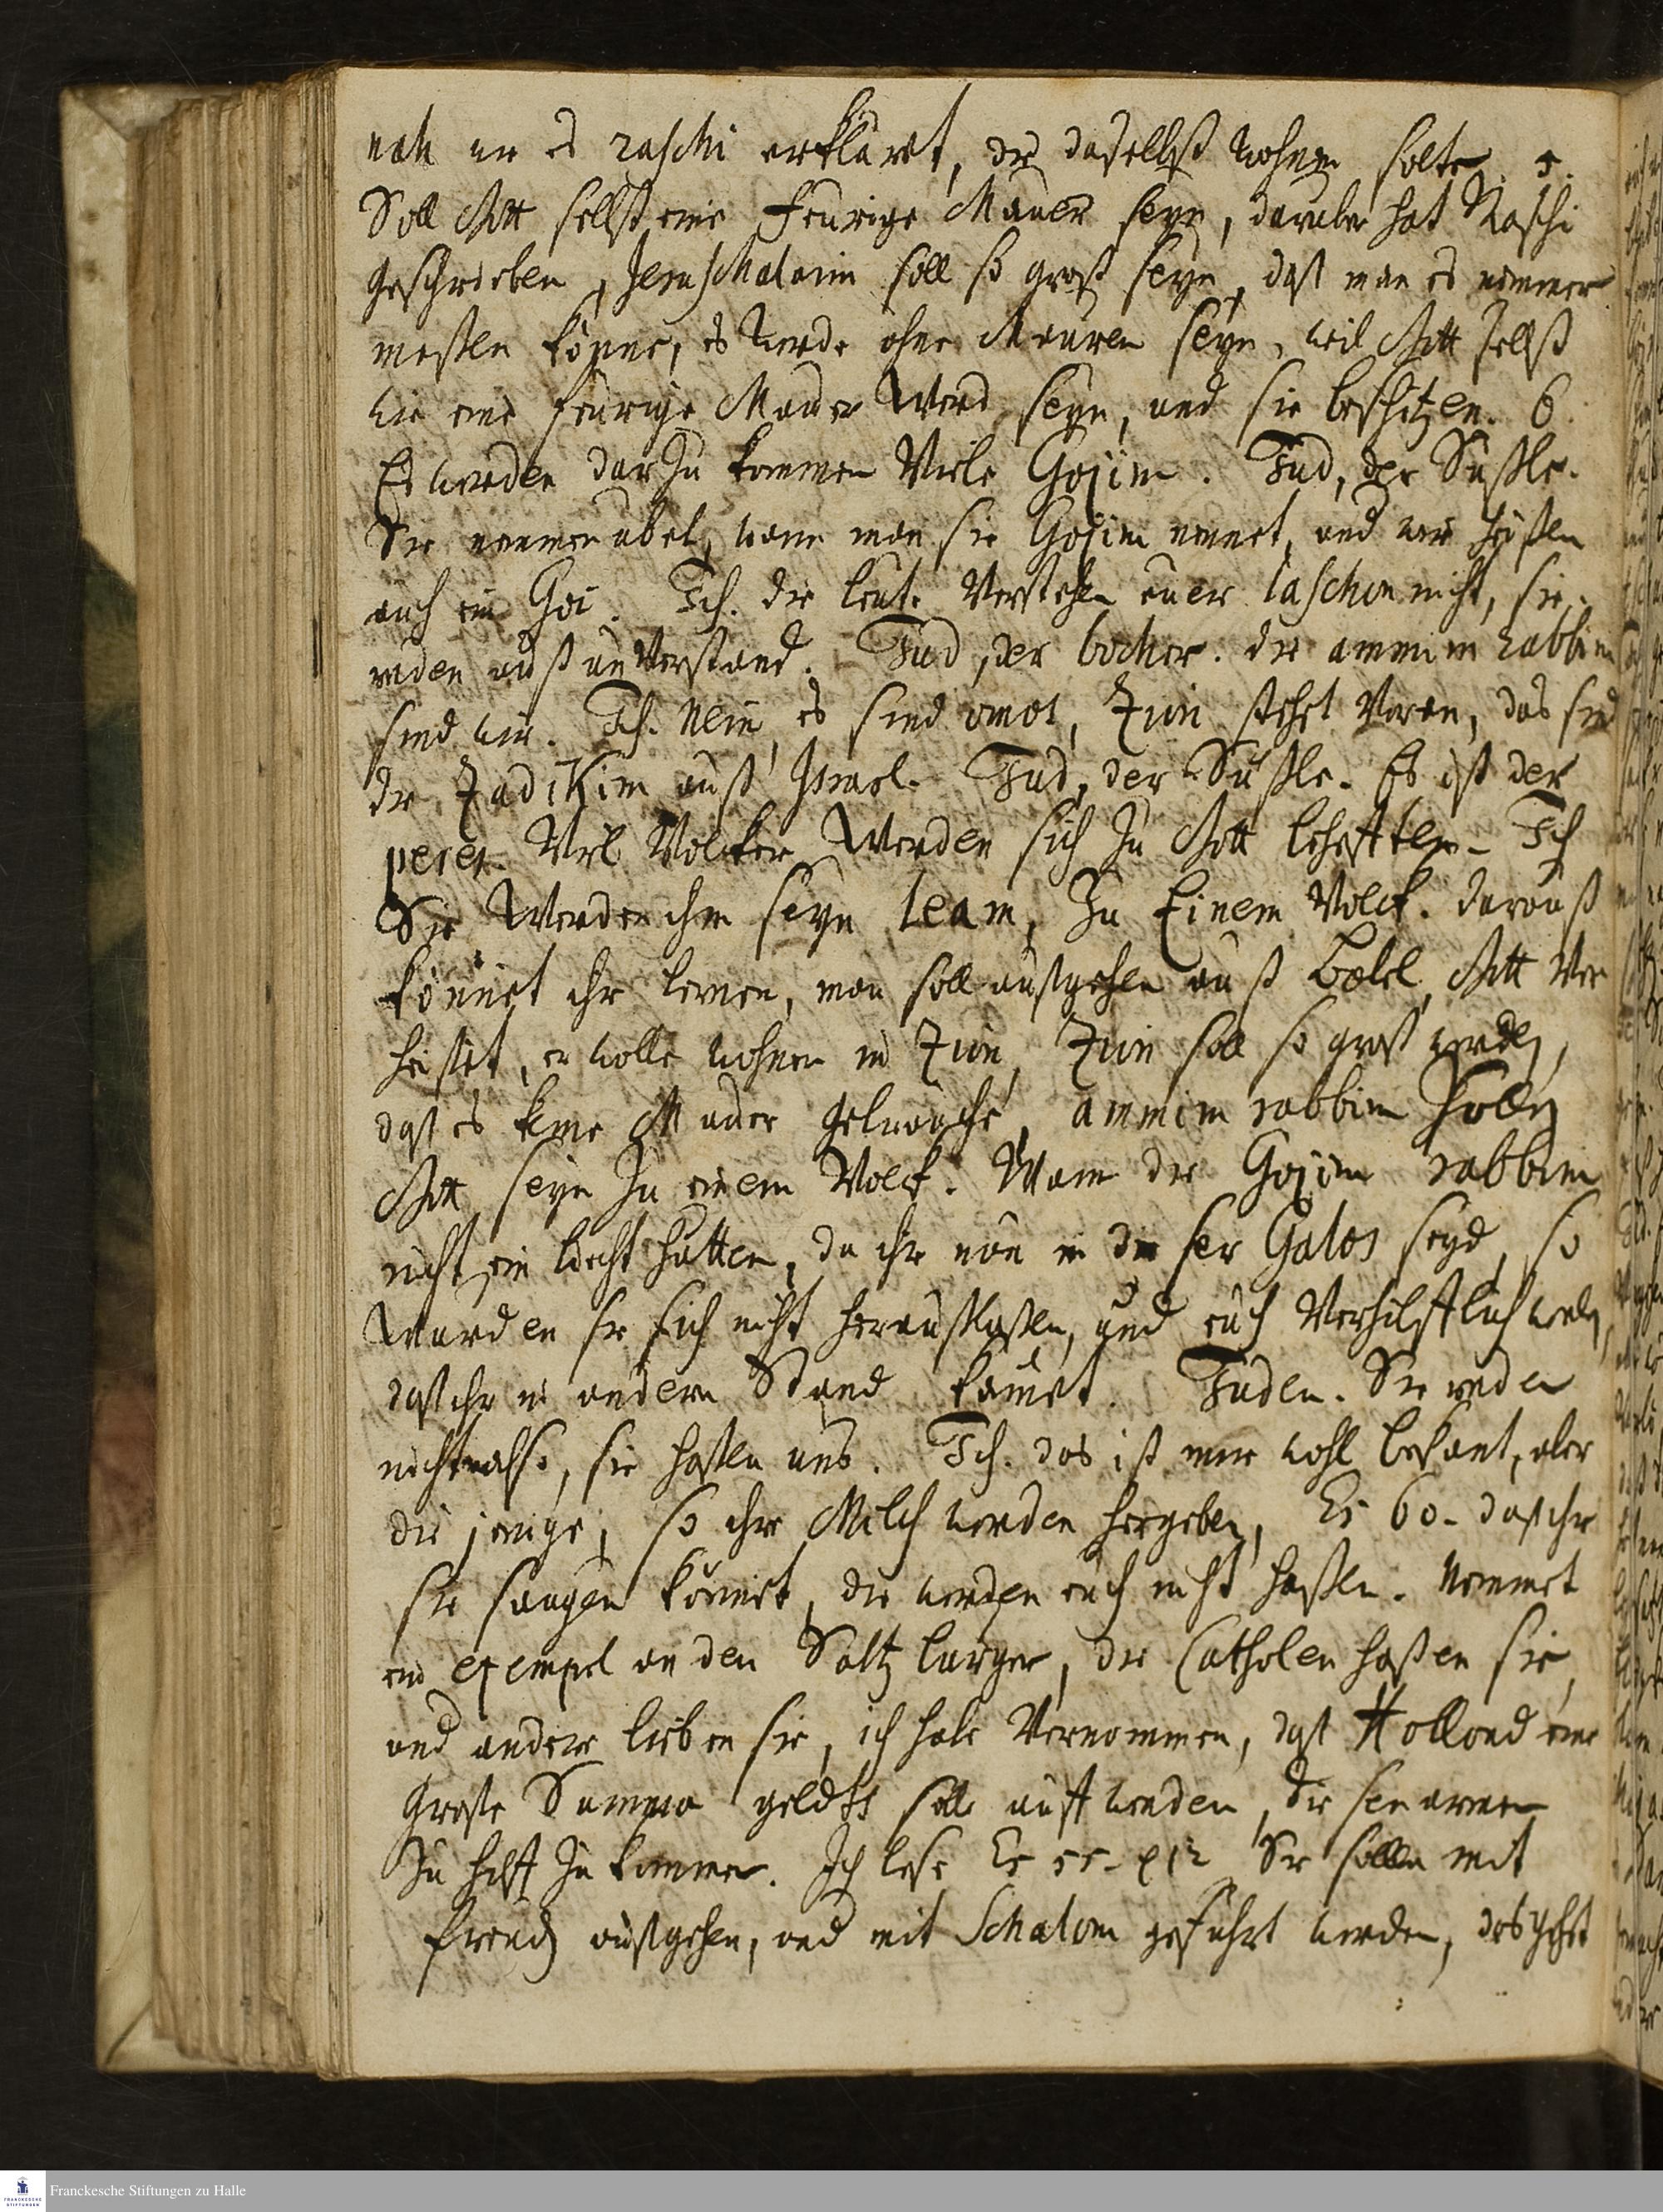 nah wie es raschi erkläret, der daselbst wohnen solte. 5.
Soll Gott selbst eine feurige Mauer seyn, darüber hat Raschi
geschrieben, Jeruschalaim soll so groß seyn, daß man es nimmer
meßen könne, es werde ohne Mauren seyn, weil Gott selbst
wie eine feurige Mauer werd seyn, und sie beschitzen. 6
Es werden darzu kommen Viele Gojim. Jud, der Süßle.
Sie nemmen übel, wann man sie Gojim nennet, und wir heißen
auch ein Goi. Ich. die leute Verstehen euer laschon nicht, sie
reden auß unVerstand. Jud, der bocher. die ammim rabbim
sind wir. Ich. Nein, es sind omos, Zion stehet Voran, das sind
die Zadikim auß Israel. Jud, der Süßle. Es ist der
peres. Viel Völcker Werden sich zu Gott behefften. Ich
Sie Werden ihm seyn leam, zu Einem Volck. darauß
könnet ihr lernen, man soll außgehen auß Babel, Gott Ver
heißet, er wolle wohnen in Zion, Zion soll so groß werden,
daß es keine Mauer gebrauche, ammim rabbim sollen
Gott seyn zu einem Volck. Wann die Gojim rabbim
nicht ein liecht hätten, da ihr nun in dieser Galos seyd, so
Wurden sie sich nicht heraußlaßen, und euch Verhilfflich werden,
daß ihr in andern Stand kämet. Juden. Sie reden
nicht also, sie haßen uns. Ich. das ist mir wohl bekant, aber
die jenige, so ihre Milch werden hergeben, Es 60. daß ihr
sie saugen könnet, die werden euch nicht haßen. Nemmet
ein exempel an den Saltzburger, die Catholen haßen sie,
und andere lieben sie, ich habe Vernommen, daß Holland eine
große Summa geldts soll auffwenden, diesen armen
zu hilff zu kommen. Ich lese Es 55. p 12 Sie sollen mit
freuden außgehen, und mit Schalom geführt werden, das gehet
Franckesche Stiftungen zu Halle